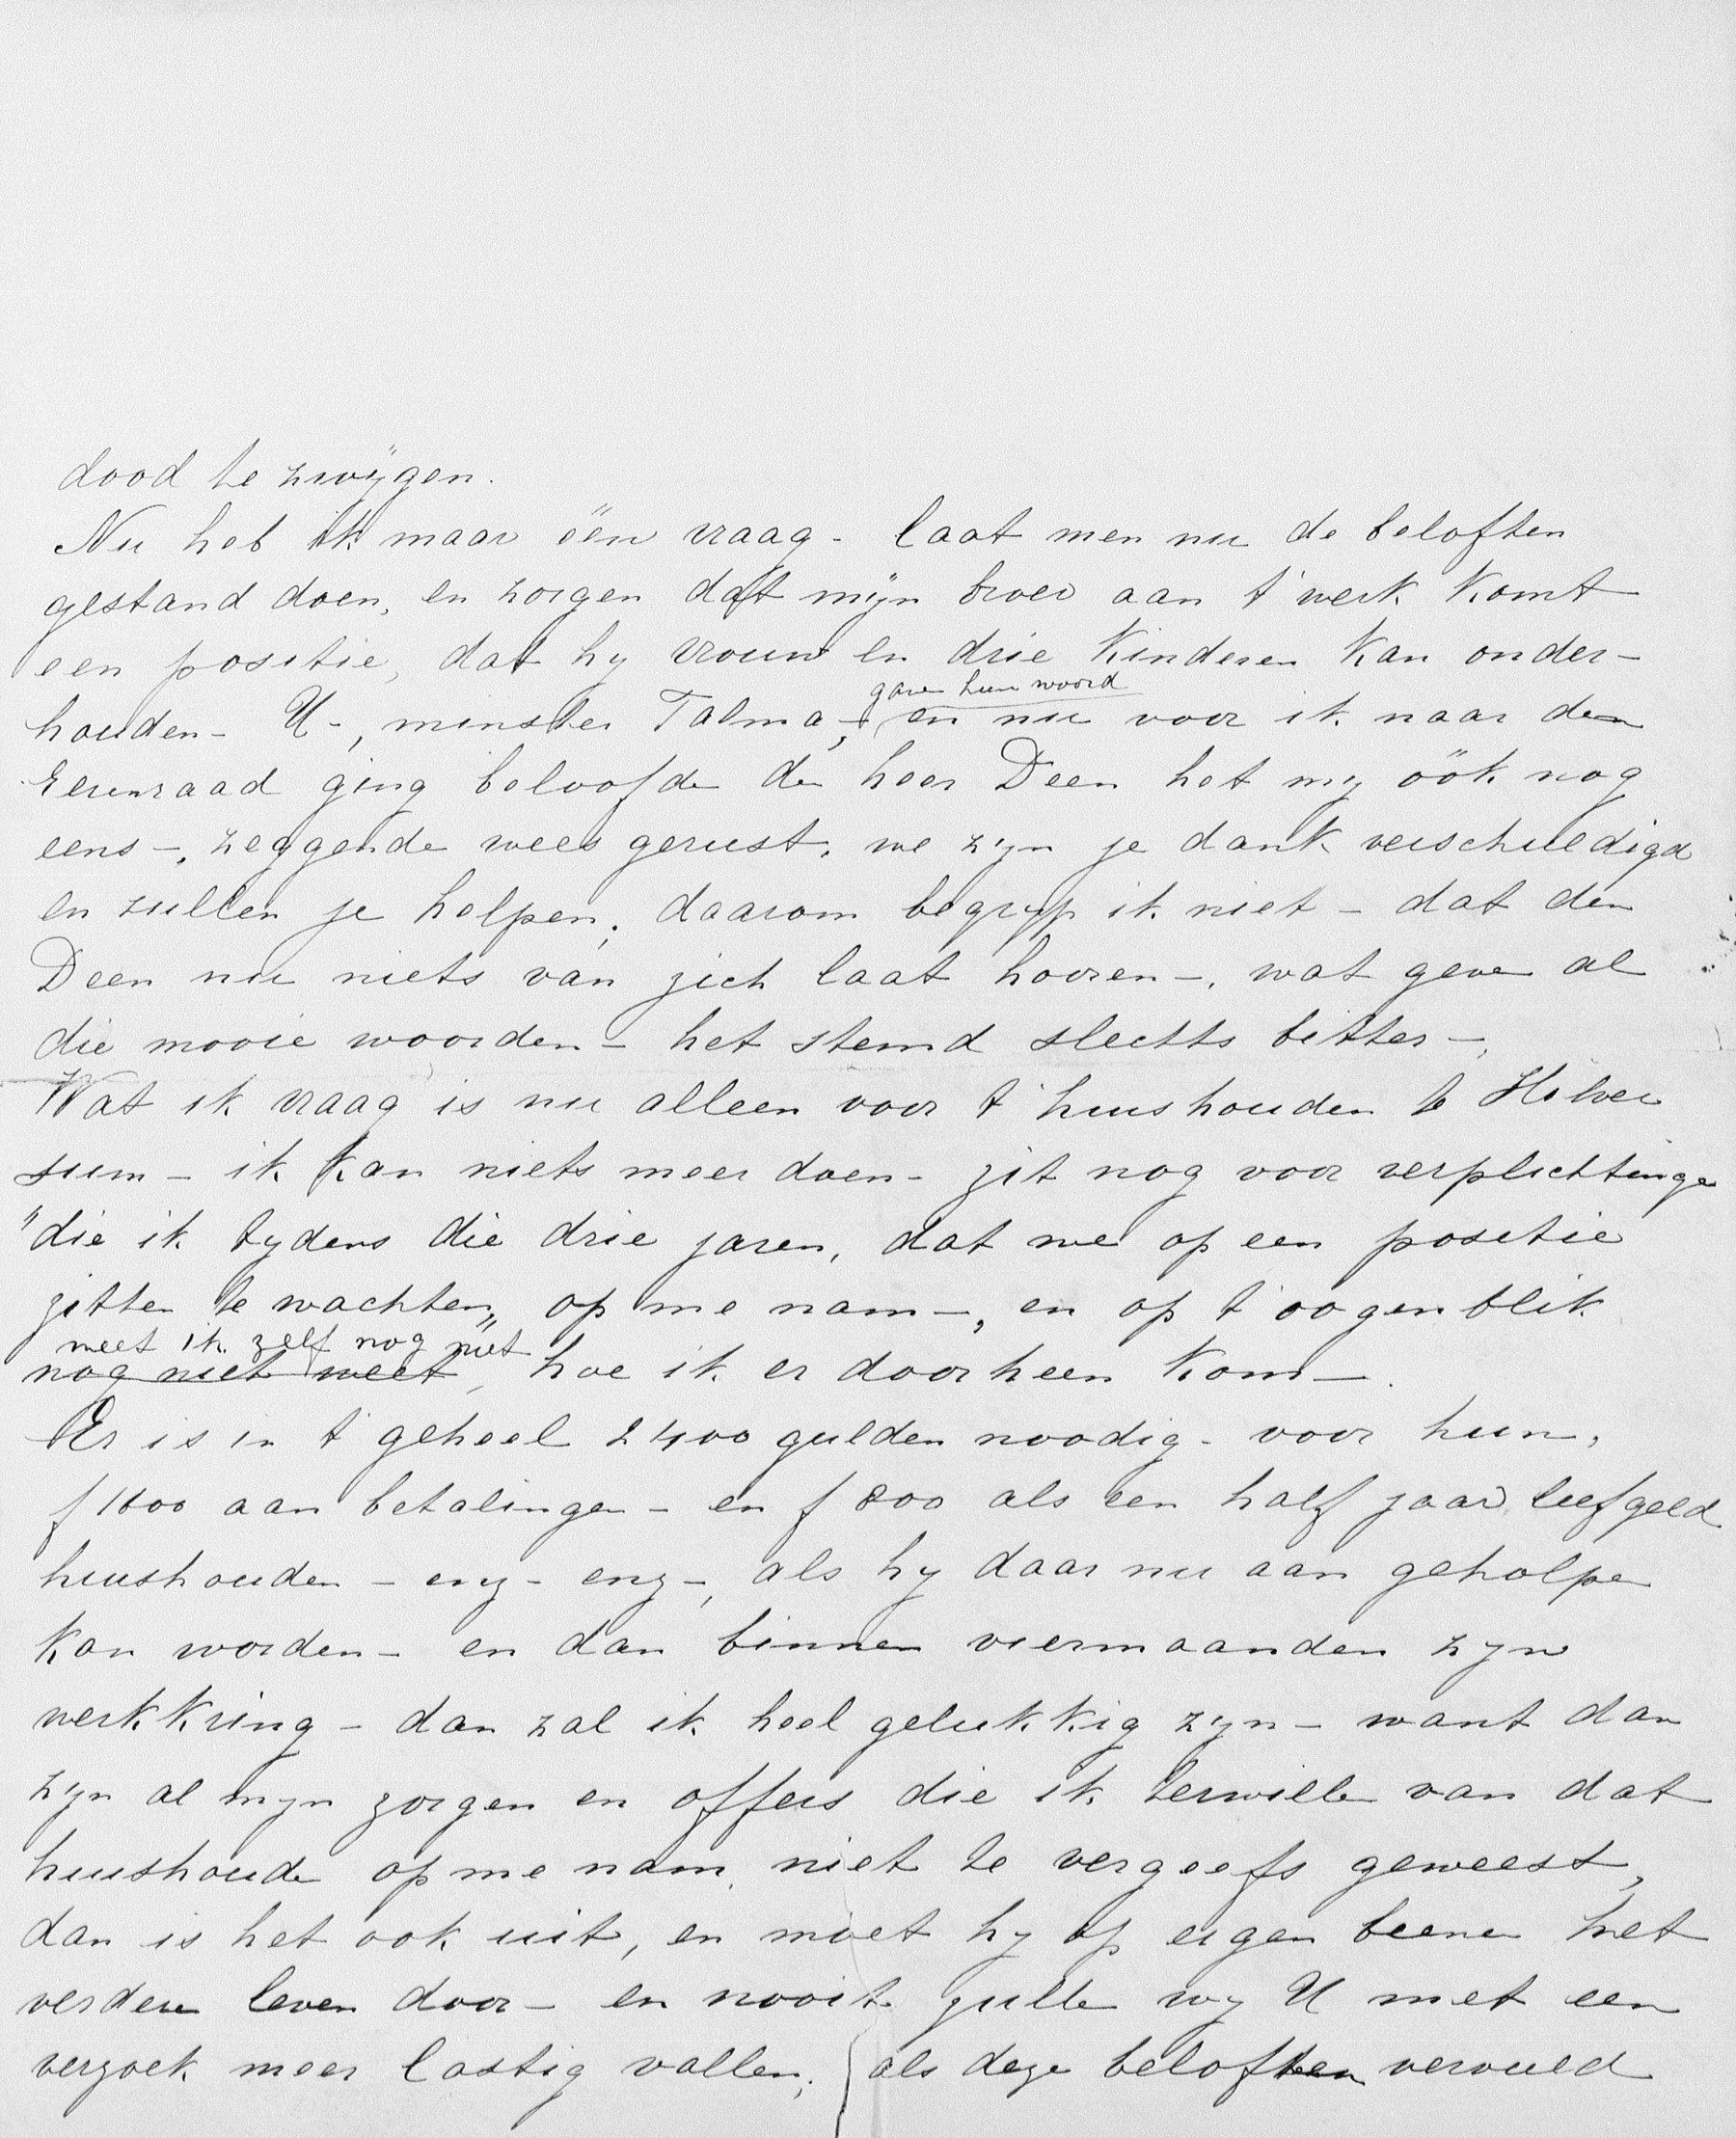 dood te zwÿgen.
Nu heb ik maar één vraag - laat men nu de beloften
gestand doen, en zorgen dat mÿn broer aan t' werk komt
een positie, dat hy vrouw en drie kinderen kan onder-
houden - U -, minster Talma,
gave hun woord
en nu voor ik naar den
Eerenraad ging beloofde de heer Deen het my óók nog
eens -, zeggende wees gerust, we zyn je dank verschuldigd
en zullen je helpen, daarom begryp ik niet - dat den
Deen nu niets van zich laat hooren -, wat geve al
die mooie woorden - het stemd slechts bitter -,
Wat ik vraag is nu alleen voor t' huushouden te Hilver
sum - ik kan niets meer doen - zit nog voor verplichtinge
"die ik tydens die drie jaren, dat we op een positie
zitten te wachten,, op me nam -, en op t' oogenblik
weet ik zelf nog niet
nog niet weet, hoe ik er doorheen kom -.
Er is in t' geheel 2400 gulden noodig - voor hun,
f 1600 aan betalingen - en f 800 als een half jaar leefgeld
huushouden - enz - enz -, als hy daar nu aan geholpe
kon worden - en dan binnen viermaanden zyn
werkkring - dan zal ik heel gelukkig zyn - want dan
zyn al myn zorgen en offers die ik terwille van dat
huushoude op me nam, niet te vergeefs geweest,
dan is het ook uit, en moet hy op eigen beenen het
verdere leven door - en nooit zulle wy U met een
verzoek meer lastig vallen, als deze beloften vervuld